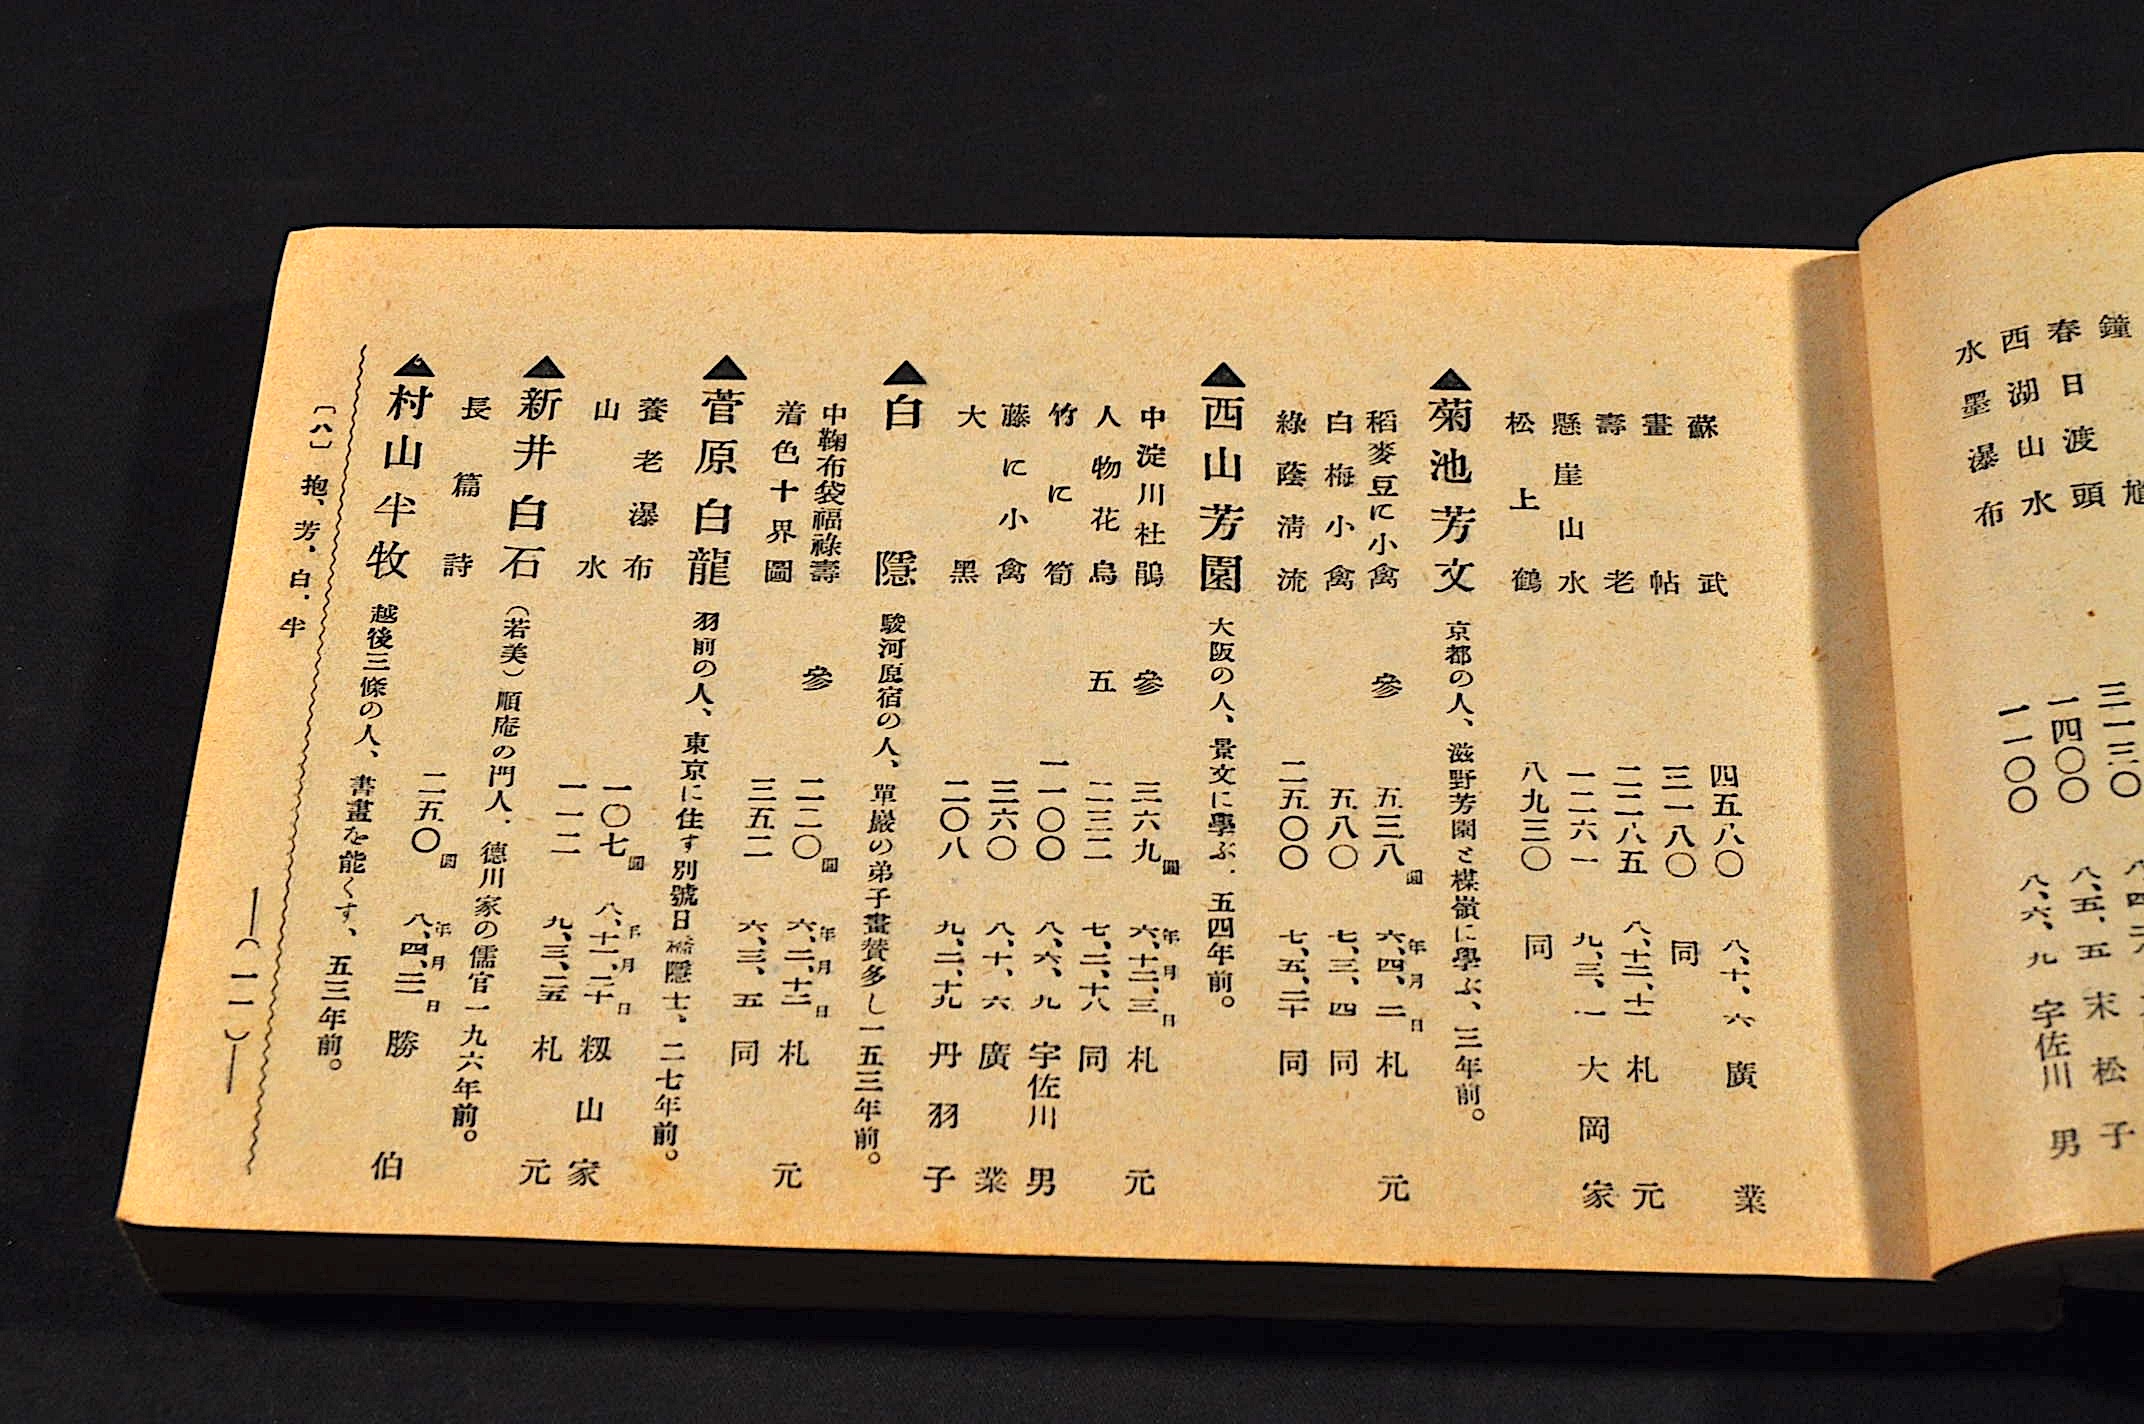 鐘
春日渡頭
西湖山水 一四〇〇 八、五、五 末松子
水墨瀑布 一一〇〇 八、六、九 宇佐川男
蘇武 四五八〇 八、十、六 廣業
畫帖 三一八〇 同
壽老 二二八五 八、十二、十一 札元
懸崖山水 一二六一 九、三、一 大岡家
松上鶴 八九三〇 同
▲菊池芳文 京都の人、滋野芳園と楳嶺に學ぶ、三年前。
稻麥豆に小禽 參 五三八圓 六、四、二年月日 札元
白梅小禽 五八〇 七、三、四 同
綠蔭淸流 二五〇〇 七、五、二十 同
▲西山芳園 大阪の人、景文に學ぶ、五四年前。
中淀川杜鵑 參 三六九圓 六、十二、三年月日 札元
人物花鳥 五 二三二 七、二、十八 同
竹に筍 一一〇〇 八、六、九 宇佐川男
藤に小禽 三六〇 八、十、六 廣業
大黑 二〇八 九、二、十九 丹羽子
▲白隱 駿河原宿の人、單嚴の弟子畫賛多し一五三年前。
中鞠布袋福祿壽 參 二二〇圓 六、二、十二年月日 札元
着色十界圖 三五二 六、三、五 同
▲菅原白龍 羽前の人、東京に住す別號日橋隱士、二七年前。
養老瀑布 一〇七圓 八、十二、二十年月日 籾山家
山水 一一二 九、三、二五 札元
▲新井白石 (若美)順庵の門人、德川家の儒官一九六年前。
長篇詩 二五〇圓 八、四、二二年月日 勝伯
▲村山半牧 越後三條の人、書畫を能くす、五三年前。
〔ハ〕抱、芳、白、半
―(一一)―